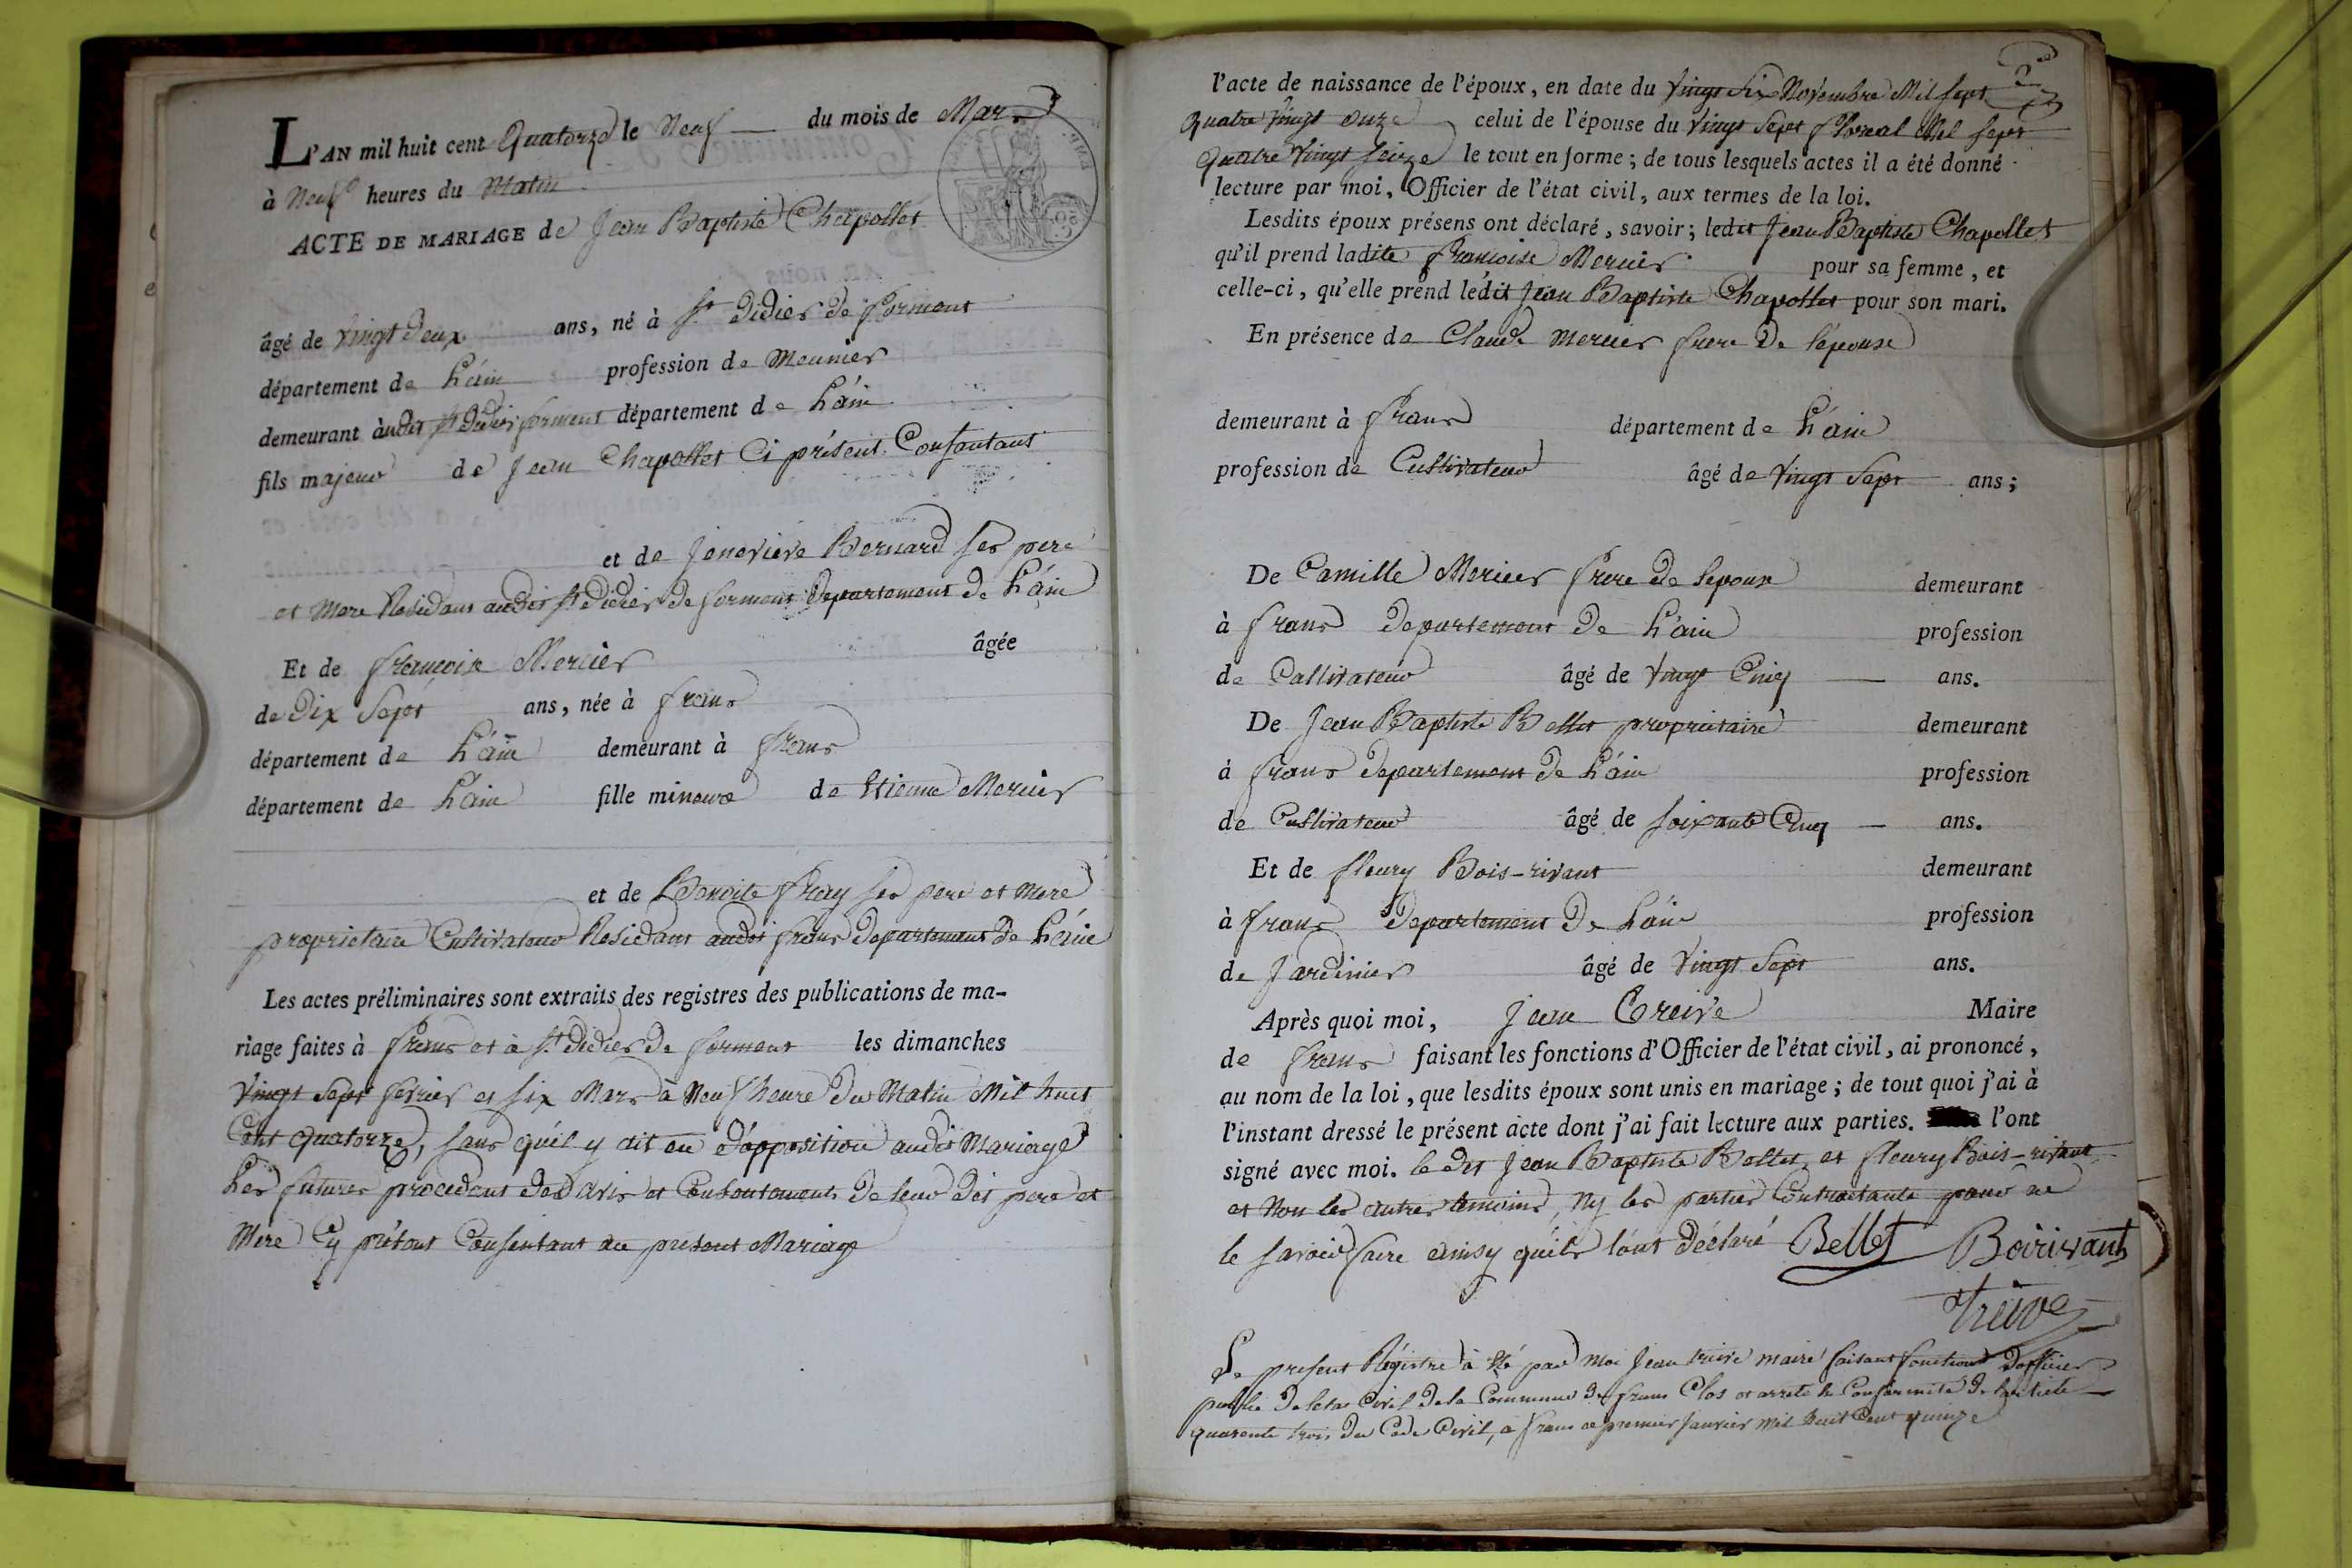 L'AN mil huit cent Quatorze le Neuf du mois de Mars
à Neuf heures du Matin
ACTE DE MARIAGE de Jean Baptiste Chapollet
âgé de vingt deux ans, né à St Didier de formont
département de L'ain profession de Meunier
demeurant audit st didier formont département de L'ain
fils majeur de Jean Chapollet Ci présent Consantant
et de Jenevieve Bernard ses pere
et Mere Residant audit st didier de formont departement de L'ain
Et de francoise Mercier âgée
de Dix Sept ans, née à frans
département de L'ain demeurant à frans
département de L'ain fille mineure de Etienne Mercier
et de Benoite fray ses pere et Mere
proprietaire Cultivateur Residant audit frans departement de L'ain
Les actes préliminaires sont extraits des registres des publications de ma-
riage faites à frans et à st didier de formont les dimanches
vingt Sept fevrier et six Mars à Neuf heure du Matin Mil huit
Cent quatorze, sans qu'il y ait eu d'opposition audit Mariage
Les futures procedent des avis et Consentement de leur dit pere et
Mere Cy présent Consentant au present Mariage
l'acte de naissance de l'époux, en date du vingt Six Novembre Mil sept
quatre vingt onze celui de l'épouse du vingt Sept floreal Mil sept
quatre vingt seize le tout en forme; de tous lesquels actes il a été donné
lecture par moi, Officier de l'état civil, aux termes de la loi.
Lesdits époux présens ont déclaré, savoir; ledit Jean Baptiste Chapollet
qu'il prend ladite francoise Mercier pour sa femme, et
celle-ci, qu'elle prend ledit Jean Baptiste Chapollet pour son mari.
En présence de Claude Mercier frere de l'epouse
demeurant à frans département de L'ain
profession de Cultivateur âgé de vingt Sept ans;
De Camille Mercier frere de lepouse demeurant
à frans departement de L'ain profession
de Cultivateur âgé de vingt Cinq ans.
De Jean Baptiste Bellet proprietaire demeurant
à frans departement de L'ain profession
de Cultivateur âgé de soixante Cinq ans.
Et de fleury Bois-rivant demeurant
à frans Departement De L'ain profession
de Jardinier âgé de vingt Sept ans.
Après quoi moi, Jean Treive Maire
de frans faisant les fonctions d'Officier de l'état civil, ai prononcé,
au nom de la loi, que lesdits époux sont unis en mariage; de tout quoi j'ai à
l'instant dressé le présent acte dont j'ai fait lecture aux parties. l'ont
signé avec moi. le dit Jean Baptiste Bellet, et fleury Bois-rivant
et Non les autres temoins, Ny les parties Contractante pour ne
le savoir faire ainsy qu'ils l'ont déclaré Bellet Boirivant
Treive
Le present Régistre à été par Moi Jean treive maire faisant fonctions d'officier
public De letat Civil De la Commune de frans Clos et arreté en Conformité de l'article
quarente trois du Code Civil, à frans ce premier Janvier Mil huit Cent quinze